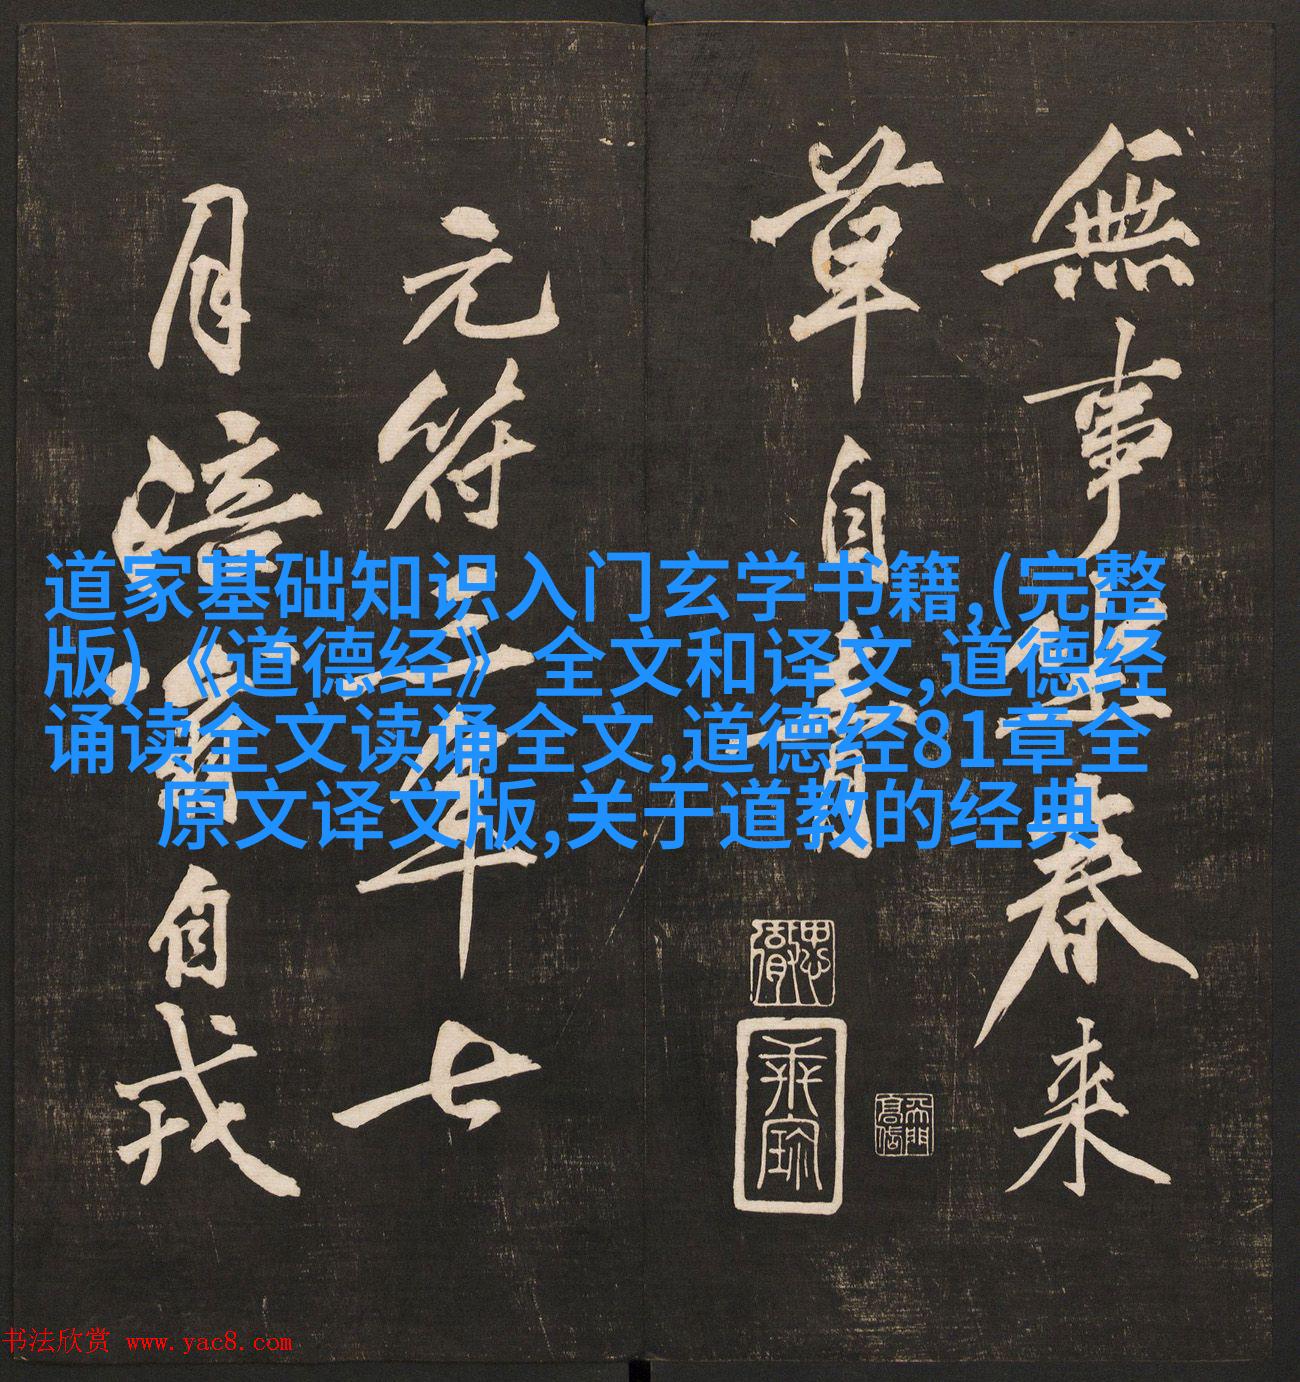 無事坐春来
草自青
元符三年七
月涪翁自戎
道家基础知识入门玄学书籍,(完整
版)《道德经》全文和译文,道德经
诵读全文读诵全文,道德经81章全
原文译文版,关于道教的经典
书法欣赏 www.yac8.com